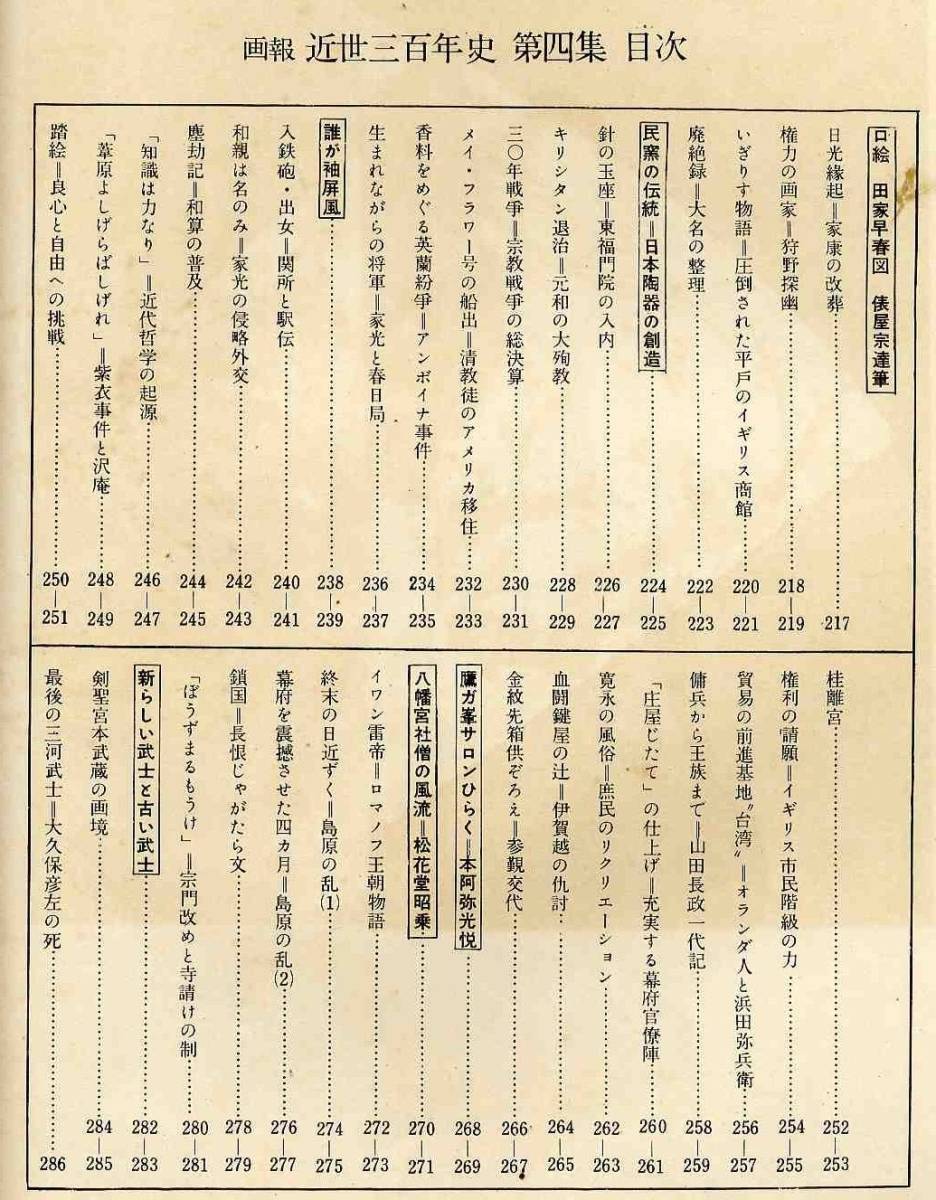 画報 近世三百年史 第四集 目次
口絵 田家早春図 俵屋宗達筆
日光縁起＝家康の改葬……217
権力の画家＝狩野探幽……218―219
いぎりす物語＝圧倒された平戸のイギリス商館……220―221
廃絶録＝大名の整理……222―223
民窯の伝統＝日本陶器の創造……224―225
針の玉座＝東福門院の入内……226―227
キリシタン退治＝元和の大殉教……228―229
三〇年戦争＝宗教戦争の総決算……230―231
メイ・フラワー号の船出＝清教徒のアメリカ移住……232―233
香料をめぐる英蘭紛争＝アンボイナ事件……234―235
生まれながらの将軍＝家光と春日局……236―237
誰が袖屏風……238―239
入鉄砲・出女＝関所と駅伝……240―241
和親は名のみ＝家光の侵略外交……242―243
塵劫記＝和算の普及……244―245
「知識は力なり」＝近代哲学の起源……246―247
「葦原よしげらばしげれ」＝紫衣事件と沢庵……248―249
踏絵＝良心と自由への挑戦……250―251
桂離宮……252―253
権利の請願＝イギリス市民階級の力……254―255
貿易の前進基地〝台湾〟＝オランダ人と浜田弥兵衛……256―257
傭兵から王族まで＝山田長政一代記……258―259
「庄屋じたて」の仕上げ＝充実する幕府官僚陣……260―261
寛永の風俗＝庶民のリクリエーション……262―263
血闘鍵屋の辻＝伊賀越の仇討……264―265
金紋先箱供ぞろえ＝参覲交代……266―267
鷹ガ峯サロンひらく＝本阿弥光悦……268―269
八幡宮社僧の風流＝松花堂昭乗……270―271
イワン雷帝＝ロマノフ王朝物語……272―273
終末の日近ずく＝島原の乱(1)……274―275
幕府を震撼させた四カ月＝島原の乱(2)……276―277
鎖国＝長恨じゃがたら文……278―279
「ぼうずまるもうけ」＝宗門改めと寺請けの制……280―281
新らしい武士と古い武士……282―283
剣聖宮本武蔵の画境……284―285
最後の三河武士＝大久保彦左の死……286